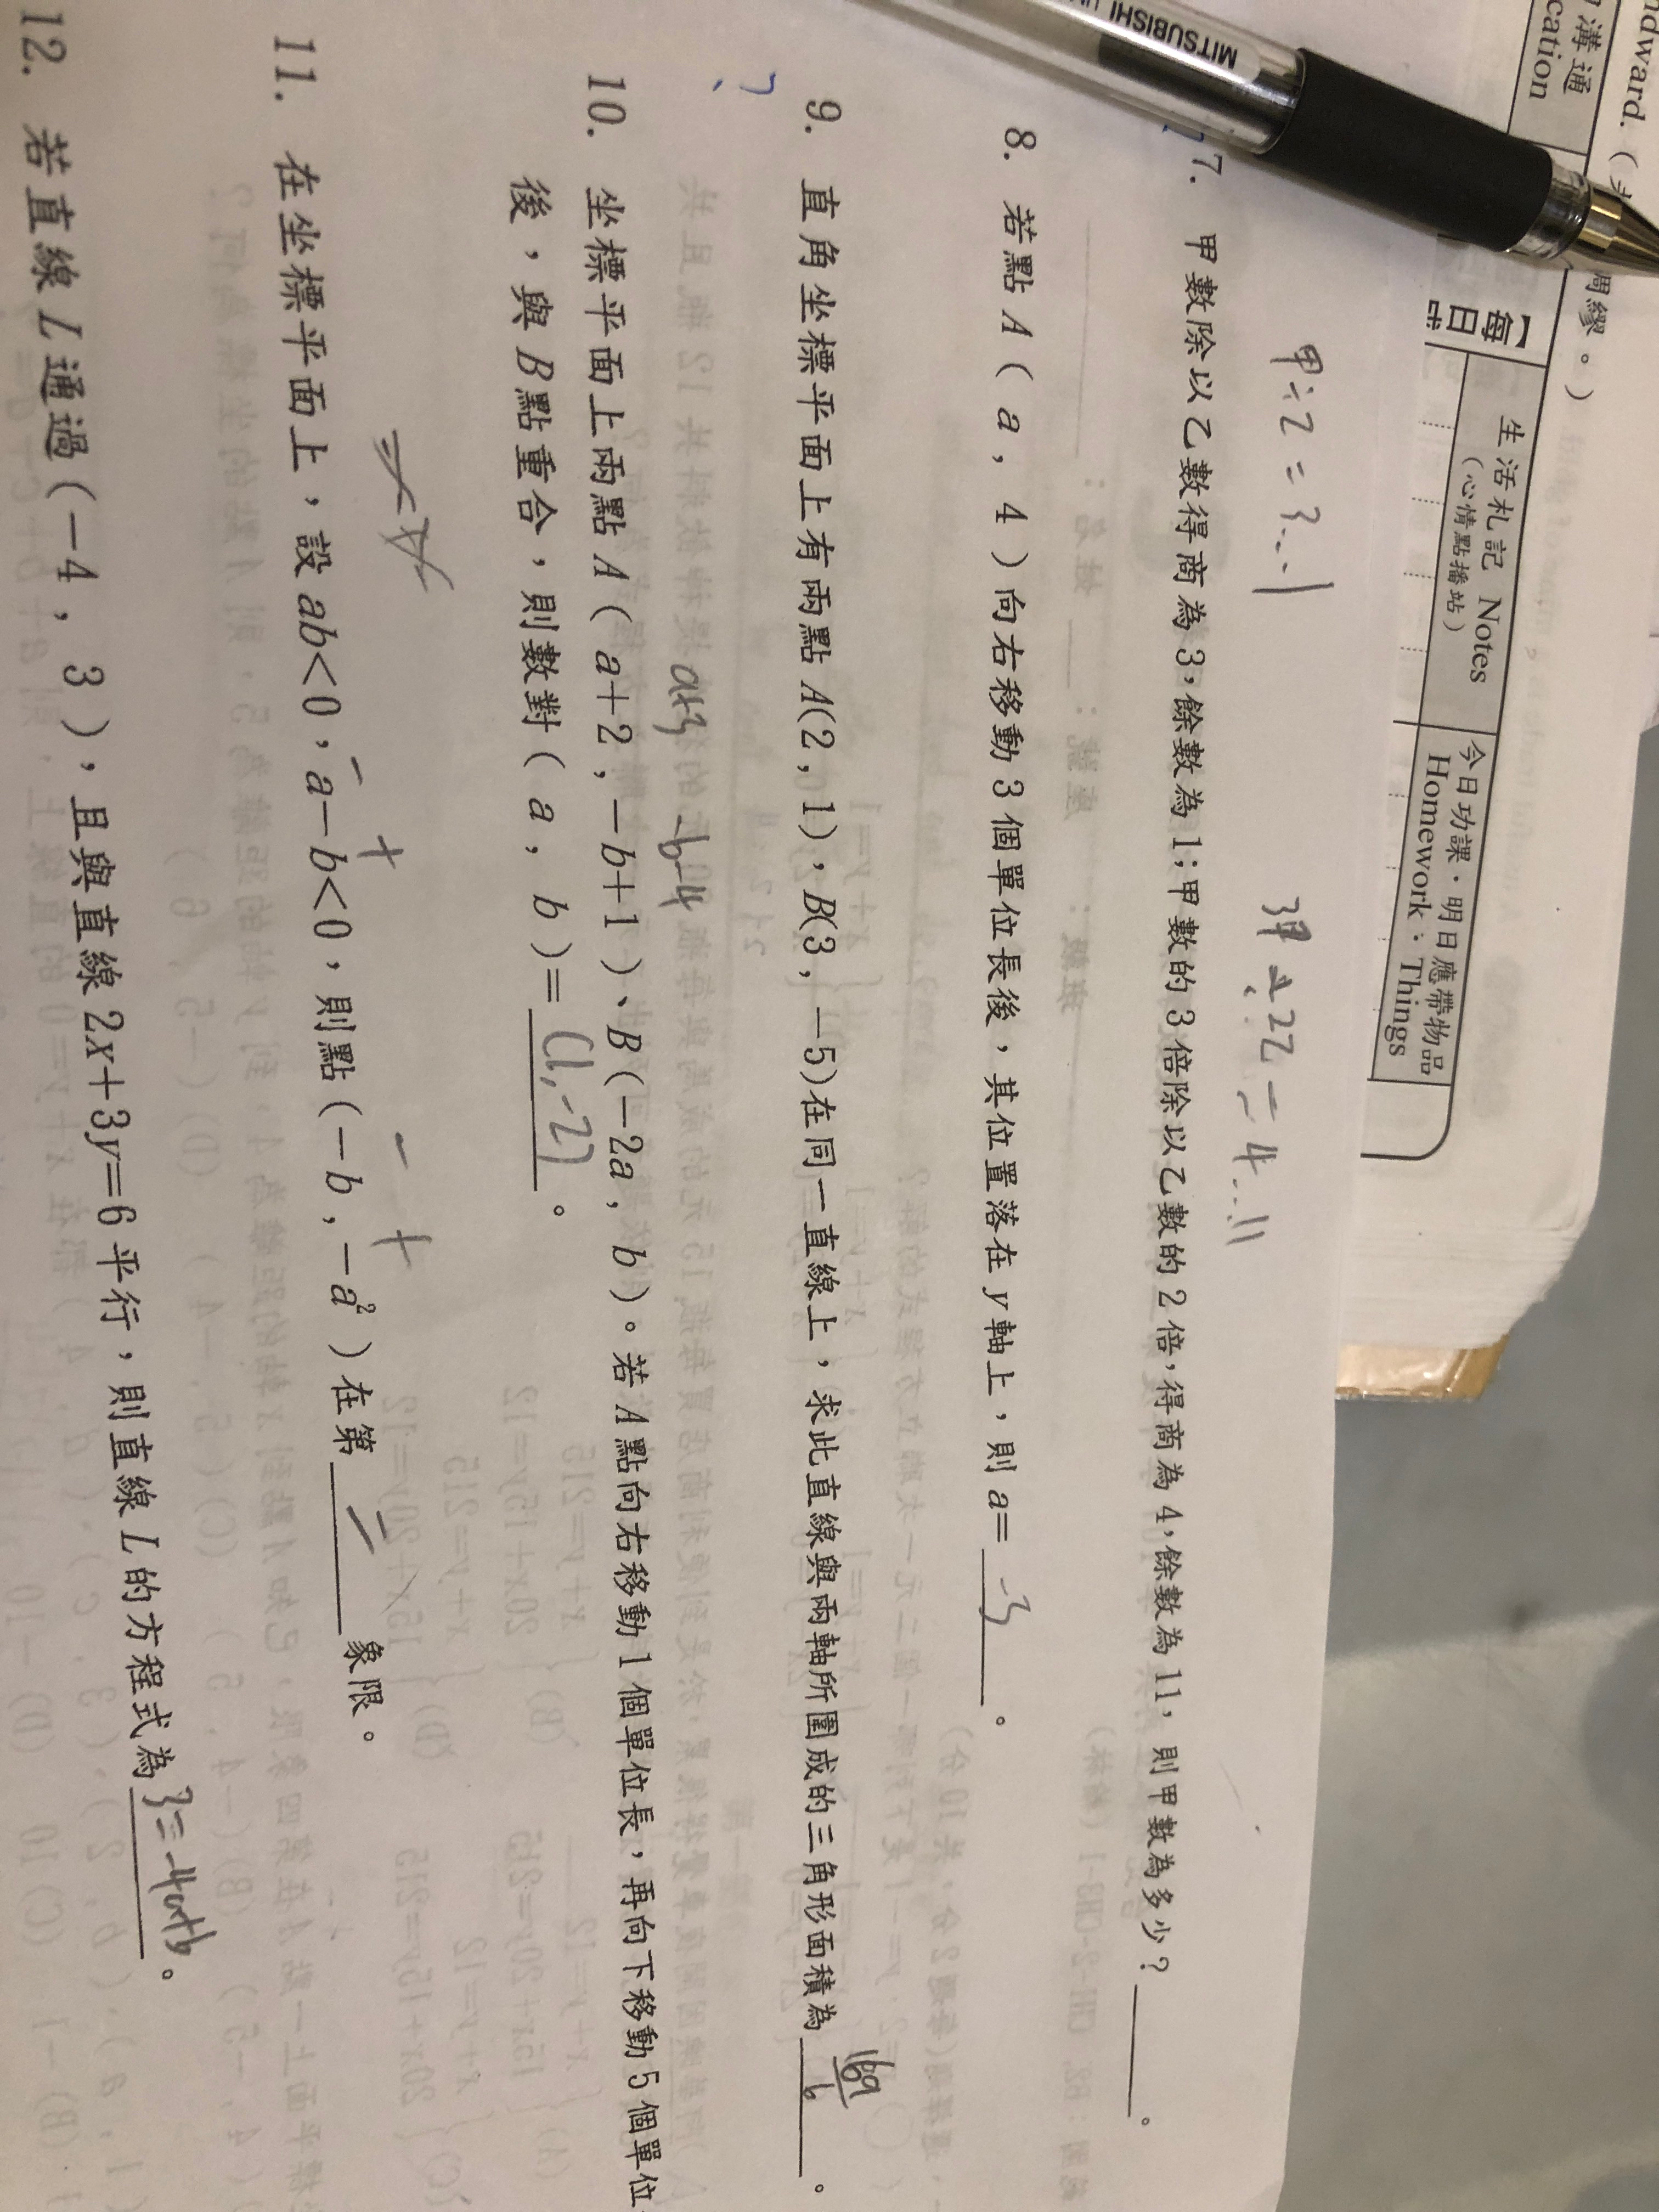 ndward.(
溝通
cation
綢繆。)
【每日
生活札記 Notes
(心情點播站)
今日功課・明日應帶物品
Homework；Things
MITSUBISHI
甲÷乙=3…1
3甲÷2乙=4…11
7. 甲數除以乙數得商為3,餘數為1;甲數的3倍除以乙數的2倍,得商為4,餘數為11,則甲數為多少?______。
8. 若點A(a,4)向右移動3個單位長後,其位置落在y軸上,則a=-3。
9. 直角坐標平面上有兩點A(2,1),B(3,-5)在同一直線上,求此直線與兩軸所圍成的三角形面積為169/6。
a+3 -b-4
10. 坐標平面上兩點A(a+2,-b+1)、B(-2a,b)。若A點向右移動1個單位長,再向下移動5個單位
後,與B點重合,則數對(a,b)=(1,-2)。
- + - +
11. 在坐標平面上,設ab<0,a-b<0,則點(-b,-a²)在第二象限。
12. 若直線L通過(-4,3),且與直線2x+3y=6平行,則直線L的方程式為3=-4a+b。